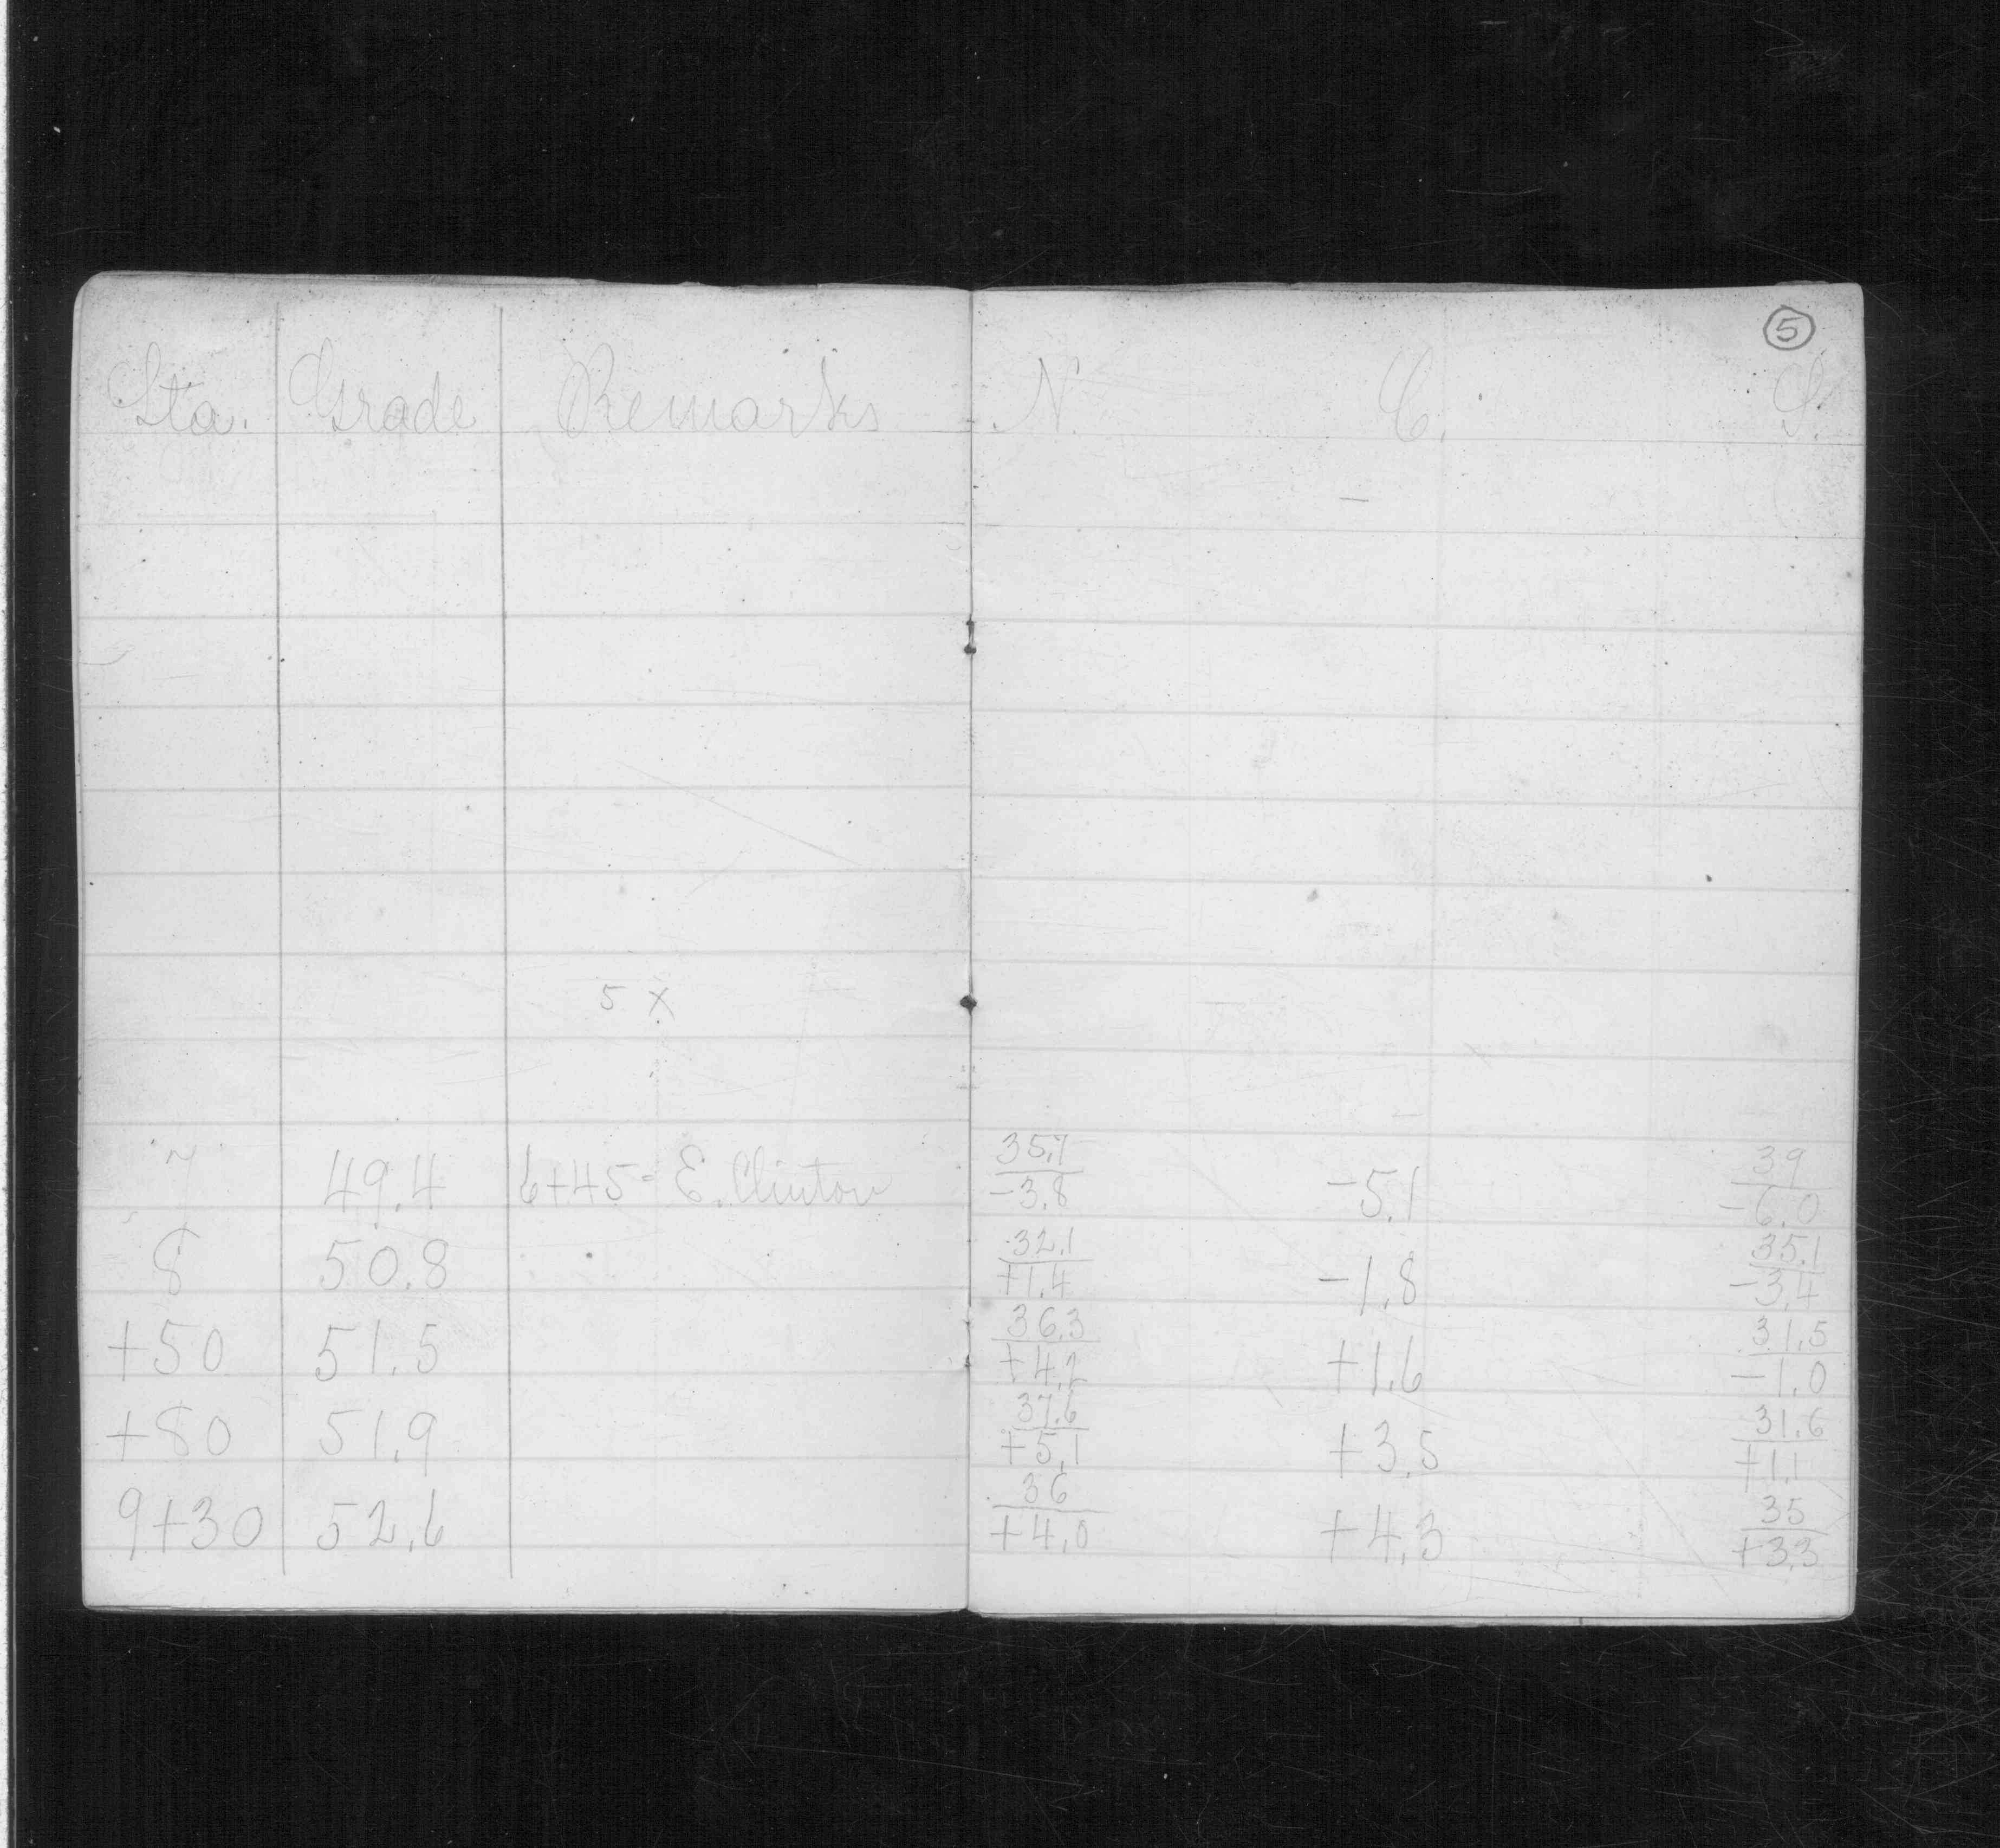 5
Sta. Grade Remarks N. C. S.
5 X
35.7 39
7 49.4 6+45= E. Clinton -3.8 -5.1 -6.0
32.1 35.1
8 50.8 +1.4 -1.8 -3.4
36.3 31.5
+50 51.5 +4.2 +1.6 -1.0
37.6 31.6
+80 51.9 +5.1 +3.5 +1.1
36 35
9+30 52.6 +4.0 +4.3 +3.3